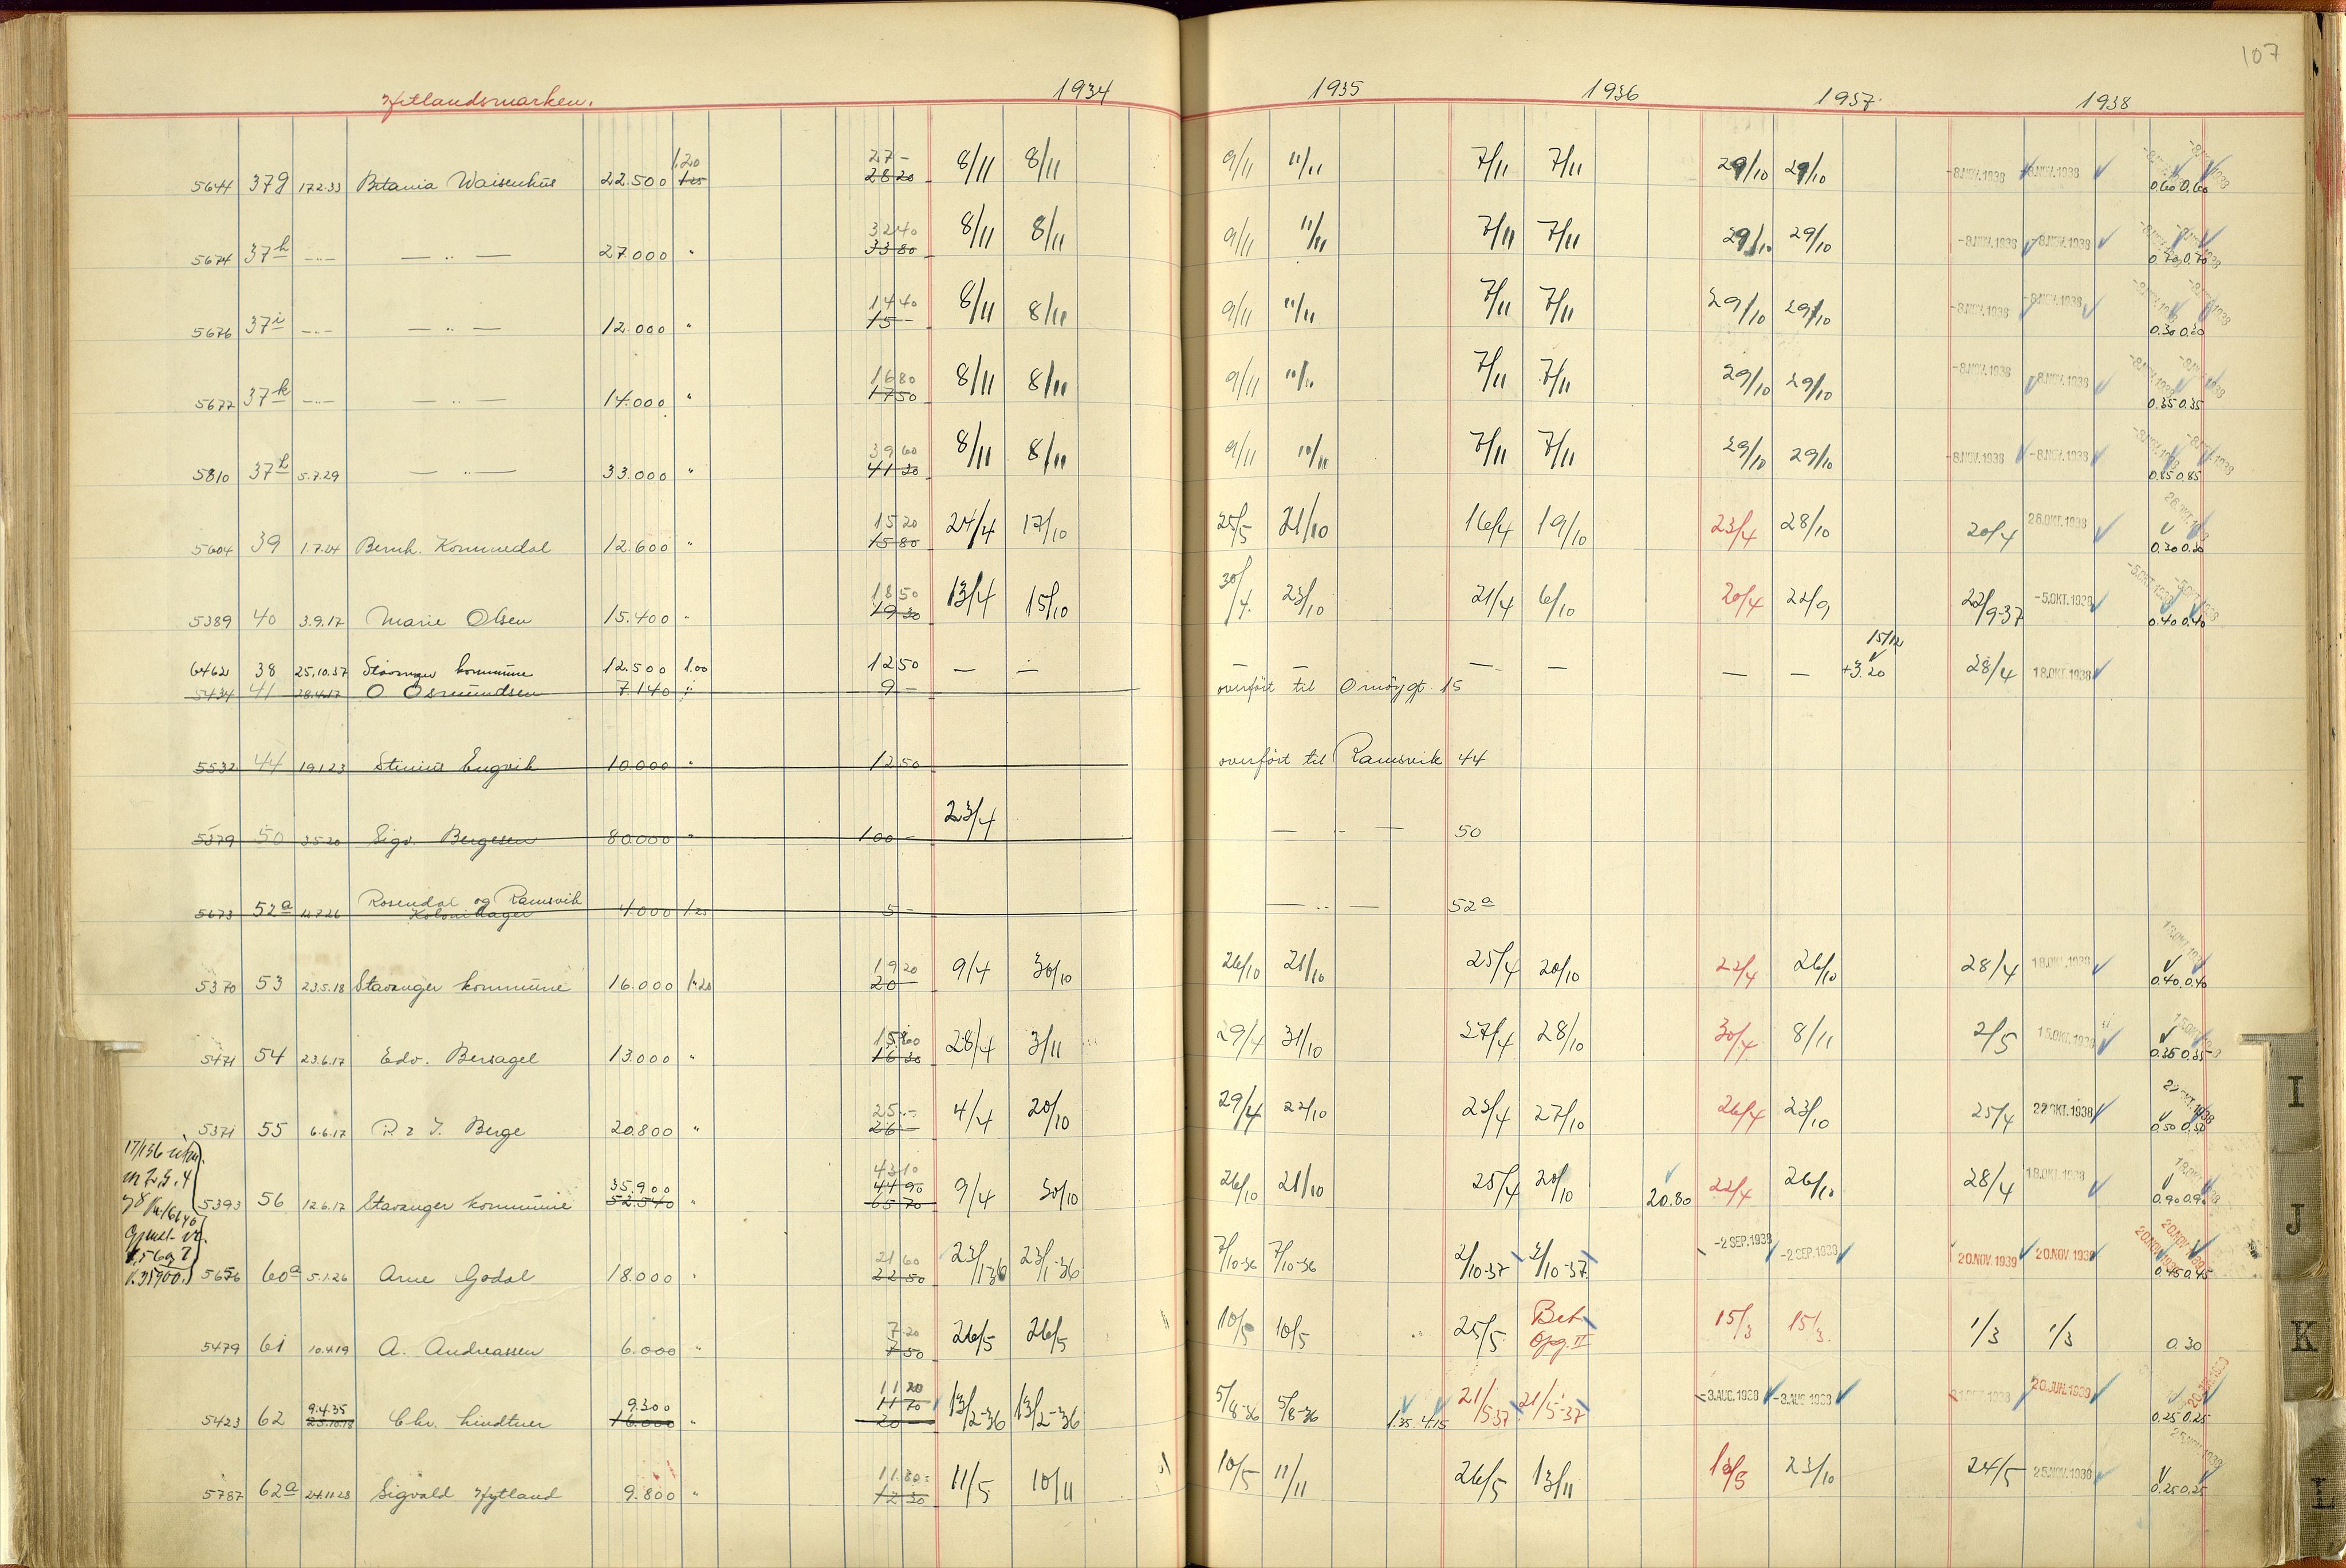 107
Hetlandsmarken. 1934 1935 1936 1937. 1938
5644 37g 17.2.33 Betania Waisenhus 22.500 1.20 1.25 27 - 28 20 8/11 8/11 9/11 11/11 7/11 7/11 29/10 29/10 -8.NOV.1938 -8.NOV.1938 0.60 0.60
5674 37h -..- — .. — 27.000 " 32 40 33 80 8/11 8/11 9/11 11/11 7/11 7/11 29/10 29/10 -8.NOV.1938 -8.NOV.1938 0.70 0.70
5676 37i -..- — .. — 12.000 " 14 40 15 - 8/11 8/11 9/11 11/11 7/11 7/11 29/10 29/10 -8.NOV.1938 -8.NOV.1938 0.30 0.30
5677 37k -..- — .. — 14.000 " 16 80 17 50 8/11 8/11 9/11 11/11 7/11 7/11 29/10 29/10 -8.NOV.1938 -8.NOV.1938 0.35 0.35
5810 37l 5.7.29 — .. — 33.000 " 39 60 41 30 8/11 8/11 9/11 11/11 7/11 7/11 29/10 29/10 -8.NOV.1938 -8.NOV.1938 0.85 0.85
5604 39 1.7.24 Bernh. Kommedal 12.600 " 15 20 15 80 24/4 17/10 25/5 21/10 16/4 19/10 23/4 28/10 20/4 26.OKT.1938 0.30 0.30
5389 40 3.9.17 Marie Olsen 15.400 " 18 50 19 30 13/4 15/10 30/4. 23/10 21/4 6/10 20/4 22/9 22/9-37 -5.OKT.1938 0.40 0.40
6462 38 25.10.37 Stavanger kommune 12.500 1.00 12 50 — — — — — — — — 15/12 +3.20 28/4 18.OKT.1938
5434 41 28.4.17 O Osmundsen 7.140 " 9 - overført til Omøygt. 15
5532 44 19.1.23 Stinius Engvik 10.000 " 12 50 overført til Ramsvik 44
5379 50 3.5.20 Sigv. Bergesen 80.000 " 100 - 23/4 — .. — 50
5673 52a 12.7.26 Rosendal og Ramsvik
Kolonihager 4.000 1.25 5 - — .. — 52a
5370 53 23.5.18 Stavanger kommune 16.000 1.20 19 20 20 - 9/4 30/10 26/10 21/10 25/4 20/10 22/4 26/10 28/4 18.OKT.1938 0.40 0.40
5471 54 23.6.17 Edv. Bersagel 13.000 " 15 60 16 30 28/4 3/11 29/4 31/10 27/4 28/10 30/4 8/11 2/5 15.OKT.1938 0.35 0.35
5371 55 6.6.17 R & J. Berge 20.800 " 25 - 26 - 4/4 20/10 29/4 22/10 23/4 27/10 26/4 23/10 25/4 22.OKT.1938 0.50 0.50
5393 56 12.6.17 Stavanger kommune 35.900 52.540 " 43 10 44 90 65 70 9/4 30/10 26/10 21/10 25/4 20/10 20.80 22/4 26/10 28/4 18.OKT.1938 0.90 0.90
V. 35900.
5656 60a 5.1.26 Arne Godal 18.000 " 21 60 22 50 23/1-36 23/1-36 7/10-36 7/10-36 2/10-37 2/10-37 -2 SEP.1938 -2 SEP.1938 20.NOV.1939 20.NOV.1939 0.45 0.45
5479 61 10.4.19 A. Andreassen 6.000 " 7 20 7 50 26/5 26/5 10/5 10/5 25/5 Bet. Opg. II 15/3 15/3. 1/3 1/3 0.30
5423 62 9.4.35 23.10.18 Chr. Lindtner 9.300 16.000 " 11 20 11 70 20 - 13/2-36 13/2-36 5/8-36 5/8-36 1.35 4.15 21/5-37 21/5-37 -3.AUG.1938 -3.AUG.1938 20.JUN.1939 0.25 0.25
5787 62a 24.11.28 Sigvald Hytland 9.800 " 11.80 12 30 11/5 10/11 10/5 11/11 26/5 13/11 13/5 23/10 24/5 25.NOV.1938 0.25 0.25
I
J
K
L